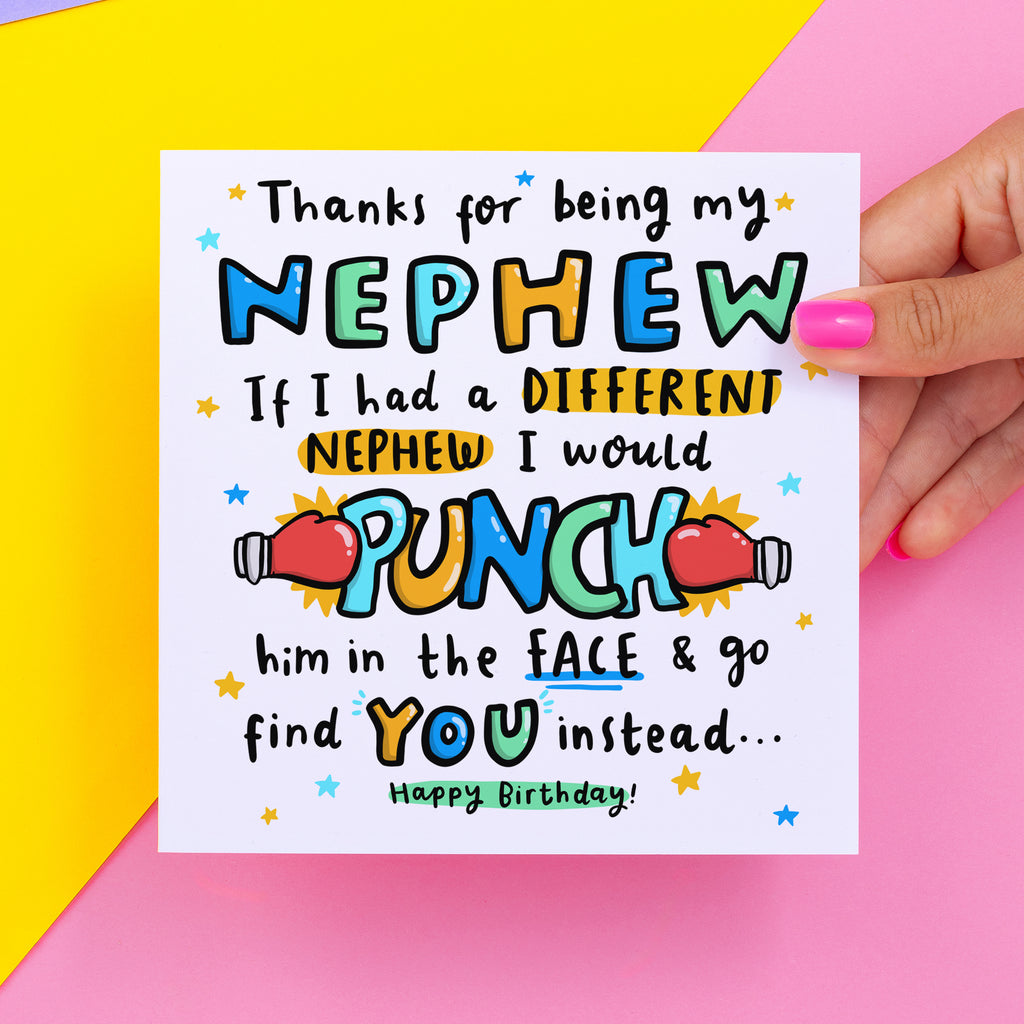 Thanks for being my
NEPHEW
If I had a DIFFERENT
NEPHEW I would
PUNCH
him in the FACE & go
find YOU instead...
Happy Birthday!